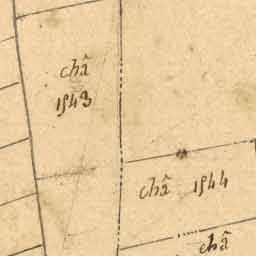 châ
1543
châ 1544
châ